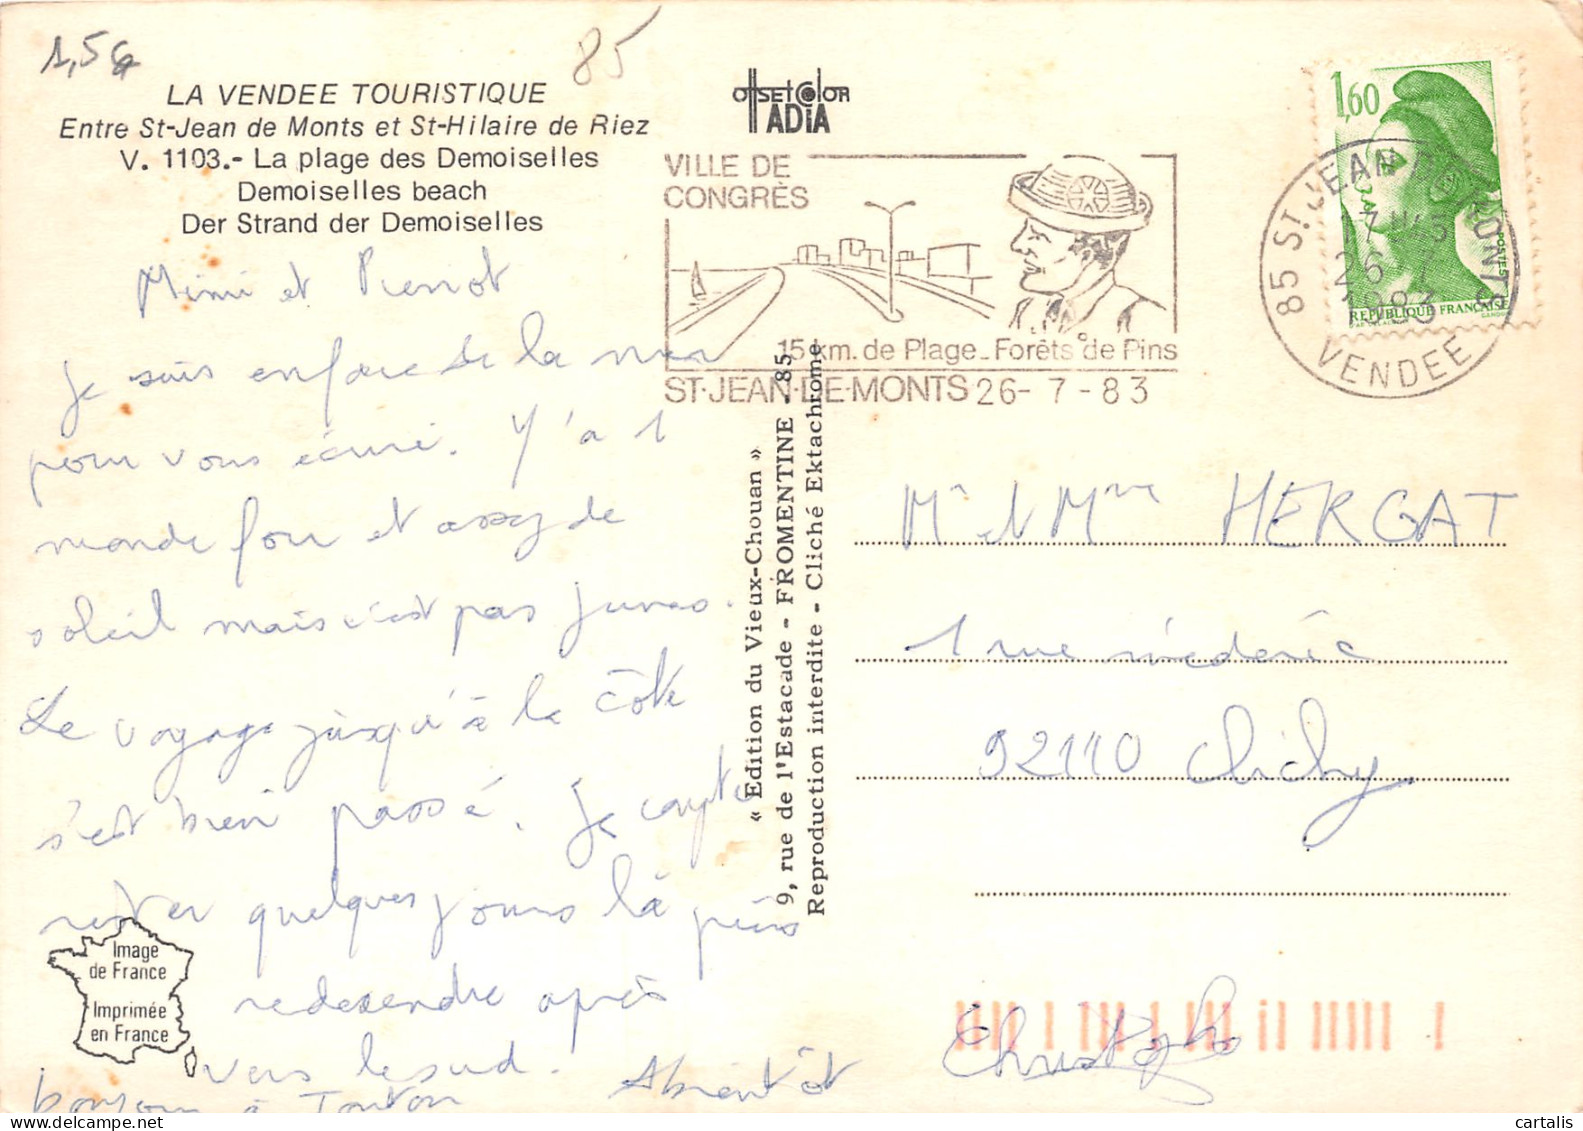 1,5€
85
LA VENDEE TOURISTIQUE
Entre St-Jean de Monts et St-Hilaire de Riez
V. 1103.- La plage des Demoiselles
Demoiselles beach
Der Strand der Demoiselles
offset color
ADIA
VILLE DE
CONGRÈS
15 km. de Plage_Forêts de Pins
ST-JEAN-DE-MONTS 26- 7 - 83
1,60
POSTES
REPUBLIQUE FRANÇAISE
85 ST JEAN DE MONTS
17 H
26 - 7
1983
VENDEE
Mimi et Pierrot
Je suis en face de la mer
pour vous écrire. Y'a 1
monde fou et assez de
soleil mais c'est pas
Le voyage jusqu'à la côte
s'est bien passé. Je compte
rester quelques jours là puis
redescendre après
vers le sud.
bonjour à Tonton
A bientôt
Christophe
« Edition du Vieux-Chouan »
9, rue de l'Estacade - FROMENTINE - 85
Reproduction interdite - Cliché Ektachrome
Mr et Mme HERGAT
1 rue médéric
92110 Clichy
Image
de France
Imprimée
en France
cartalis